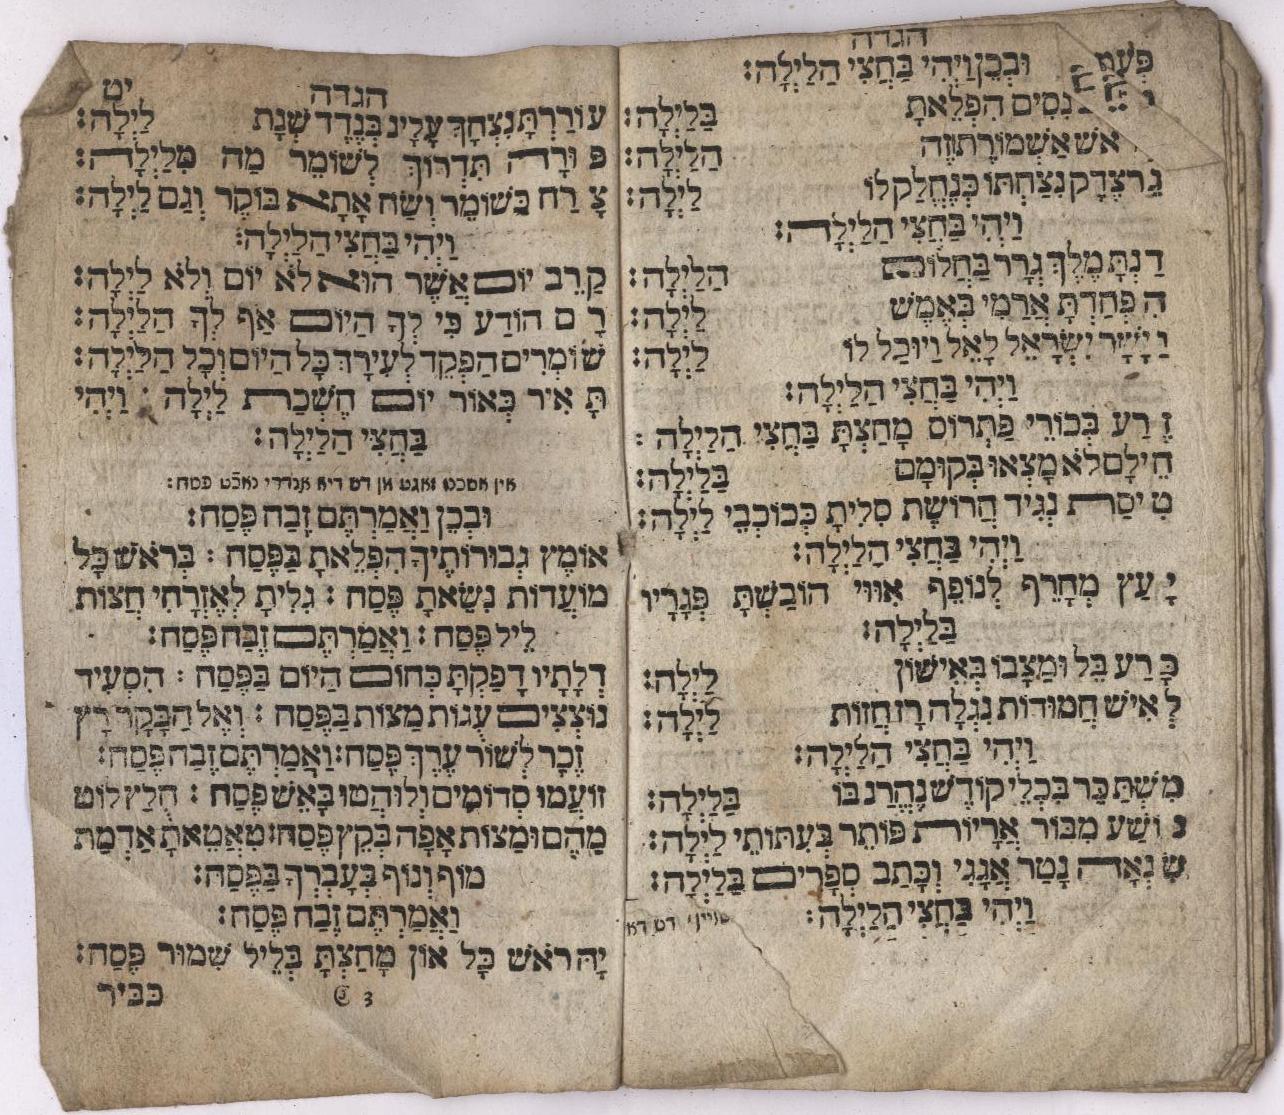 הגדה
פֶּסַח וּבְכֵן וַיְהִי בַּחֲצִי הַלַּיְלָה:
נִסִּים הִפְלֵאתָ בַּלַּיְלָה:
אשׁ אַשְׁמוֹרֶת וזֶה הַלַּיְלָה:
גֵּר צֶדֶק נִצַּחְתּוֹ כְּנֶחֱלַק לוֹ לַיְלָה:
וַיְהִי בַּחֲצִי הַלַּיְלָה:
דַּנְתָּ מֶלֶךְ גְּרָר בַּחֲלוֹם הַלַּיְלָה:
הִפְחַדְתָּ אֲרַמִּי בְּאֶמֶשׁ לַיְלָה:
וַיָּשַׂר יִשְׂרָאֵל לָאֵל וַיּוּכַל לוֹ לַיְלָה:
וַיְהִי בַּחֲצִי הַלַּיְלָה:
זֶרַע בְּכוֹרֵי פַּתְרוֹס מָחַצְתָּ בַּחֲצִי הַלַּיְלָה:
חֵילָם לֹא מָצְאוּ בְּקוּמָם בַּלַּיְלָה:
טִיסַת נְגִיד חֲרוֹשֶׁת סִלִּיתָ כְּכוֹכְבֵי לַיְלָה:
וַיְהִי בַּחֲצִי הַלַּיְלָה:
יָעַץ מְחָרֵף לְנוֹפֵף אִוּוּי הוֹבַשְׁתָּ פְּגָרָיו
בַּלַּיְלָה:
כָּרַע בֵּל וּמַצָּבוֹ בְּאִישׁוֹן לַיְלָה:
לְאִישׁ חֲמוּדוֹת נִגְלָה רָז חֲזוֹת לַיְלָה:
וַיְהִי בַּחֲצִי הַלַּיְלָה:
מִשְׁתַּכֵּר בִּכְלֵי קוֹדֶשׁ נֶהֱרַג בּוֹ בַּלַּיְלָה:
נוֹשַׁע מִבּוֹר אֲרָיוֹת פּוֹתֵר בִּעֲתוּתֵי לַיְלָה:
שִׂנְאָה נָטַר אֲגָגִי וְכָתַב סְפָרִים בַּלַּיְלָה:
וַיְהִי בַּחֲצִי הַלַּיְלָה:
הגדה יט
עוֹרַרְתָּ נִצְחֲךָ עָלָיו בְּנֶדֶד שְׁנַת לַיְלָה:
פּוּרָה תִּדְרוֹךְ לְשׁוֹמֵר מַה מִּלַּיְלָה:
צָרַח כַּשּׁוֹמֵר וְשָׂח אָתָא בוֹקֶר וְגַם לַיְלָה:
וַיְהִי בַּחֲצִי הַלַּיְלָה:
קָרֵב יוֹם אֲשֶׁר הוּא לֹא יוֹם וְלֹא לַיְלָה:
רָם הוֹדַע כִּי לְךָ הַיּוֹם אַף לְךָ הַלַּיְלָה:
שׁוֹמְרִים הַפְקֵד לְעִירְךָ כָּל הַיּוֹם וְכָל הַלַּיְלָה:
תָּאִיר כְּאוֹר יוֹם חֶשְׁכַת לַיְלָה: וַיְהִי
בַּחֲצִי הַלַּיְלָה:
אין אשכנז זאגט מן דש דיא אנדרי נאכֿט פסח:
וּבְכֵן וַאֲמַרְתֶּם זֶבַח פֶּסַח:
אוֹמֶץ גְּבוּרוֹתֶיךָ הִפְלֵאתָ בַּפֶּסַח: בְּרֹאשׁ כָּל
מוֹעֲדוֹת נִשֵּׂאתָ פֶּסַח: גִּלִּיתָ לְאֶזְרָחִי חֲצוֹת
לֵיל פֶּסַח: וַאֲמַרְתֶּם זֶבַח פֶּסַח:
דְּלָתָיו דָּפַקְתָּ כְּחוֹם הַיּוֹם בַּפֶּסַח: הִסְעִיד
נוֹצְצִים עֻגוֹת מַצּוֹת בַּפֶּסַח: וְאֶל הַבָּקָר רָץ
זֵכֶר לְשׁוֹר עֵרֶךְ פֶּסַח: וַאֲמַרְתֶּם זֶבַח פֶּסַח:
זוֹעֲמוּ סְדוֹמִים וְלוּהֲטוּ בָּאֵשׁ פֶּסַח: חֻלַּץ לוֹט
מֵהֶם וּמַצּוֹת אָפָה בְּקֵץ פֶּסַח: טִאטֵאתָ אַדְמַת
מוֹף וְנוֹף בְּעָבְרְךָ בַּפֶּסַח:
וַאֲמַרְתֶּם זֶבַח פֶּסַח:
יָהּ רֹאשׁ כָּל אוֹן מָחַצְתָּ בְּלֵיל שִׁמּוּר פֶּסַח:
3 כביר